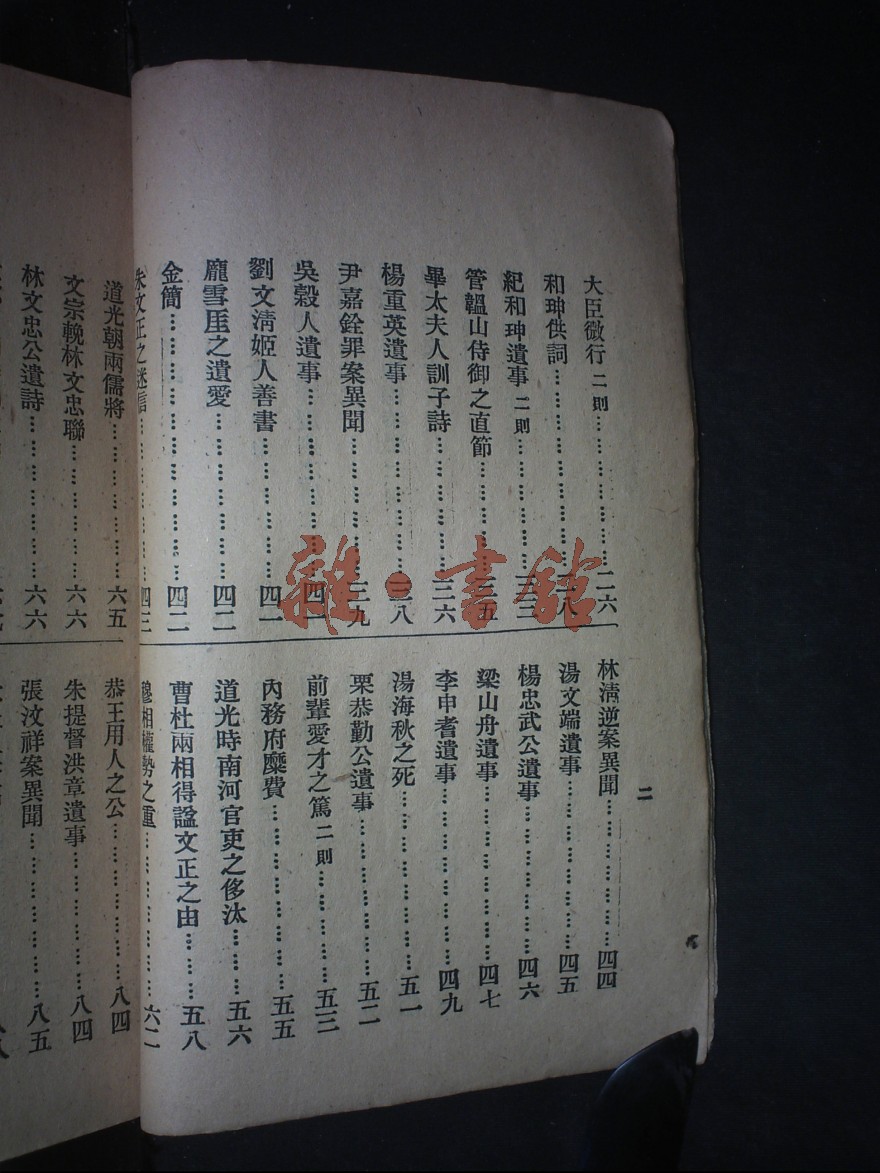 大臣微行 二則………………二六
和珅供詞………………二八
紀和珅遺事 二則………………三三
管韞山侍御之直節………………三五
畢太夫人訓子詩………………三六
楊重英遺事………………三八
尹嘉銓罪案異聞………………三九
吳穀人遺事………………四一
劉文清姬人善書………………四一
龐雪厓之遺愛………………四二
金簡………………四二
朱文正之迷信………………四三
二
林清逆案異聞………………四四
湯文端遺事………………四五
楊忠武公遺事………………四六
梁山舟遺事………………四七
李申耆遺事………………四九
湯海秋之死………………五一
栗恭勤公遺事………………五二
前輩愛才之篤 二則………………五三
內務府糜費………………五五
道光時南河官吏之侈汰………五六
曹杜兩相得諡文正之由………五八
穆相權勢之重………………六二
道光朝兩儒將………………六五
文宗輓林文忠聯………………六六
林文忠公遺詩………………六六
恭王用人之公………………八四
朱提督洪章遺事………………八四
張汶祥案異聞………………八五
雜·書館